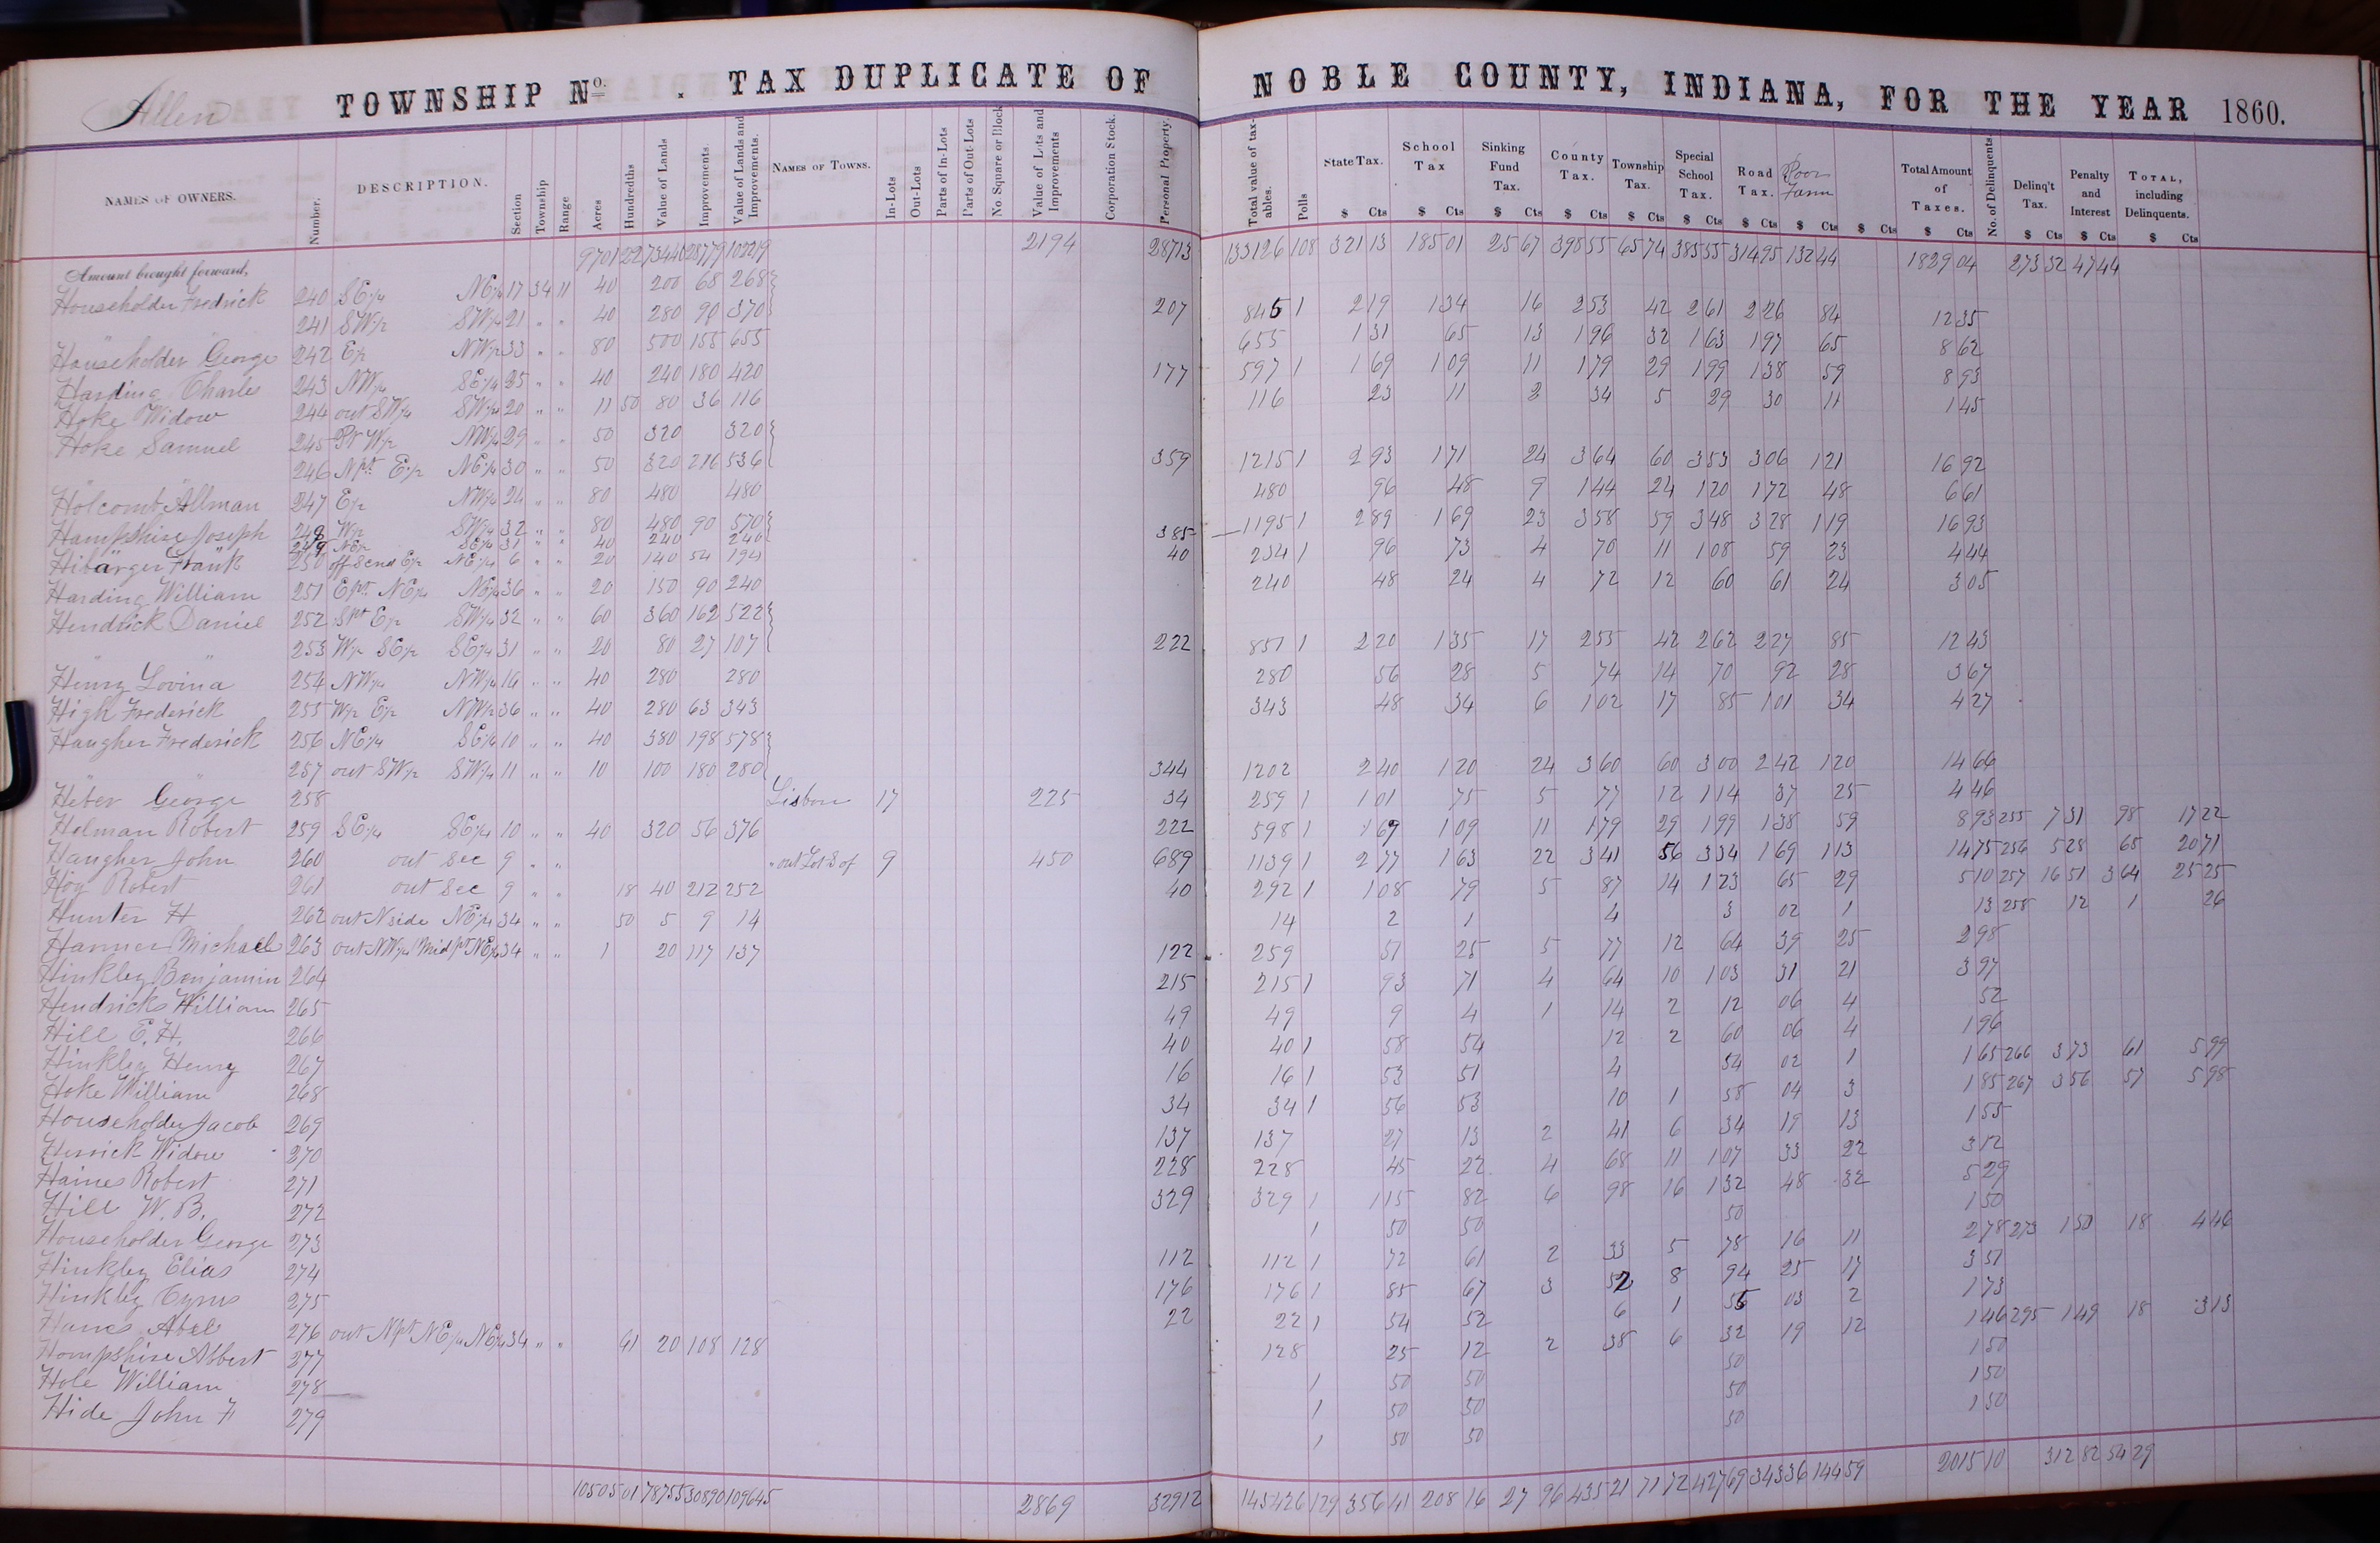 Allen TOWNSHIP No. . TAX DUPLICATE OF NOBLE COUNTY, INDIANA, FOR THE YEAR 1860.
NAMES OF OWNERS. Number. DESCRIPTION. Section Township Range Acres Hundredths Value of Lands Improvements. Value of Lands and Improvements. NAMES OF TOWNS. In-Lots Out-Lots Parts of In-Lots Parts of Out-Lots No. Square or Block Value of Lots and Improvements Corporation Stock. Personal Property. Total value of taxables. Polls State Tax. School Tax Sinking Fund Tax. County Tax. Township Tax. Special School Tax. Road Tax. Poor Farm Total Amount of Taxes. No. of Delinquents Delinq't Tax. Penalty and Interest TOTAL, including Delinquents.
$ Cts $ Cts $ Cts $ Cts $ Cts $ Cts $ Cts $ Cts $ Cts $ Cts $ Cts $ Cts $ Cts
Amount brought forward, 9701 22 73440 28779 102219 2194 28713 133126 108 321 13 185 01 25 67 398 55 65 74 385 55 314 95 132 44 1829 04 273 32 47 44
Householder Fredrick 240 SE¼ NE¼ 17 34 11 40 200 68 268
" " 241 SW½ SW¼ 21 " " 40 280 90 370 207 845 1 2 19 1 34 16 2 53 42 2 61 2 26 84 12 35
Householder George 242 E½ NW½ 33 " " 80 500 155 655 655 1 31 65 13 1 96 32 1 63 1 97 65 8 62
Harding Charles 243 NW¼ SE¼ 25 " " 40 240 180 420 177 597 1 1 69 1 09 11 1 79 29 1 99 1 38 59 8 93
Hoke Widow 244 out SW¼ SW¼ 20 " " 11 50 80 36 116 116 23 11 2 34 5 29 30 11 1 45
Hoke Samuel 245 Pt W½ NW¼ 29 " " 50 320 320
" " 246 N pt E½ NE¼ 30 " " 50 320 216 536 359 1215 1 2 93 1 71 24 3 64 60 3 53 3 06 1 21 16 92
Holcomb Allman 247 E½ NW¼ 24 " " 80 480 480 480 96 48 9 1 44 24 1 20 1 72 48 6 61
Hampshire Joseph 248 W½ SW¼ 32 " " 80 480 90 570
" " 249 NE½ SE¼ 31 " " 40 240 240 385 1195 1 2 89 1 69 23 3 58 59 3 48 3 28 1 19 16 93
Hibarger Frank 250 off S end E½ NE¼ 6 " " 20 140 54 194 40 234 1 96 73 4 70 11 1 08 59 23 4 44
Harding William 251 E pt NE¼ NE¼ 36 " " 20 150 90 240 240 48 24 4 72 12 60 61 24 3 05
Hendrick Daniel 252 S pt E½ SW¼ 32 " " 60 360 162 522
" " 253 W½ SE½ SE¼ 31 " " 20 80 27 107 222 851 1 2 20 1 35 17 2 55 42 2 62 2 27 85 12 43
Henry Lovina 254 NW¼ NW¼ 16 " " 40 280 280 280 56 28 5 74 14 70 92 28 3 67
High Frederick 255 W½ E½ NW½ 36 " " 40 280 63 343 343 48 34 6 1 02 17 85 1 01 34 4 27
Haugher Frederick 256 NE¼ SE¼ 10 " " 40 380 198 578
" " 257 out SW½ SW¼ 11 " " 10 100 180 280 344 1202 2 40 1 20 24 3 60 60 3 00 2 42 1 20 14 66
Heter George 258 Lisbon 17 225 34 259 1 1 01 75 5 77 12 1 14 37 25 4 46
Holman Robert 259 SE¼ SE¼ 10 " " 40 320 56 376 222 598 1 1 69 1 09 11 1 79 29 1 99 1 38 59 8 93 255 7 31 98 17 22
Haugher John 260 out Sec 9 " " " out Lot 3 of 9 450 689 1139 1 2 77 1 63 22 3 41 56 3 34 1 69 1 13 14 75 256 5 28 68 20 71
Hoy Robert 261 out Sec 9 " " 18 40 212 252 40 292 1 1 08 79 5 87 14 1 23 65 29 5 10 257 16 51 3 64 25 25
Hunter H 262 out N side NE¼ 34 " " 50 5 9 14 14 2 1 4 3 02 1 13 258 12 1 26
Harmer Michael 263 out NW¼ Mid pt NE¼ 34 " " 1 20 117 137 122 259 51 25 5 77 12 64 39 25 2 98
Hinkley Benjamin 264 215 215 1 93 71 4 64 10 1 03 31 21 3 97
Hendricks William 265 49 49 9 4 1 14 2 12 06 4 52
Hill E. H. 266 40 40 1 58 54 12 2 60 06 4 1 96
Hinkley Henry 267 16 16 1 53 51 4 54 02 1 1 65 266 3 73 61 5 99
Hoke William 268 34 34 1 56 53 10 1 58 04 3 1 85 267 3 56 57 5 98
Householder Jacob 269 137 137 27 13 2 41 6 34 19 13 1 55
Herrick Widow 270 228 228 45 22 4 68 11 1 07 33 22 3 12
Haines Robert 271 329 329 1 1 15 82 6 98 16 1 32 48 32 5 29
Hill W. B. 272 1 50 50 50 1 50
Householder George 273 112 112 1 72 61 2 33 5 78 16 11 2 78 273 1 50 18 4 46
Hinkley Elias 274 176 176 1 85 67 3 52 8 94 25 17 3 51
Hinkley Cyrus 275 22 22 1 54 52 6 1 56 03 2 1 73
Hanes Abel 276 out N pt NE¼ NE¼ 34 " " 61 20 108 128 128 25 12 2 38 6 32 19 12 1 46 295 1 49 18 3 13
Hompshire Albert 277 1 50 50 50 1 50
Hole William 278 1 50 50 50 1 50
Hide John F 279 1 50 50 50 1 50
10505 01 78755 30890 109645 2869 32912 145426 129 356 41 208 16 27 96 435 21 71 72 427 69 343 36 144 59 2015 10 312 82 54 29